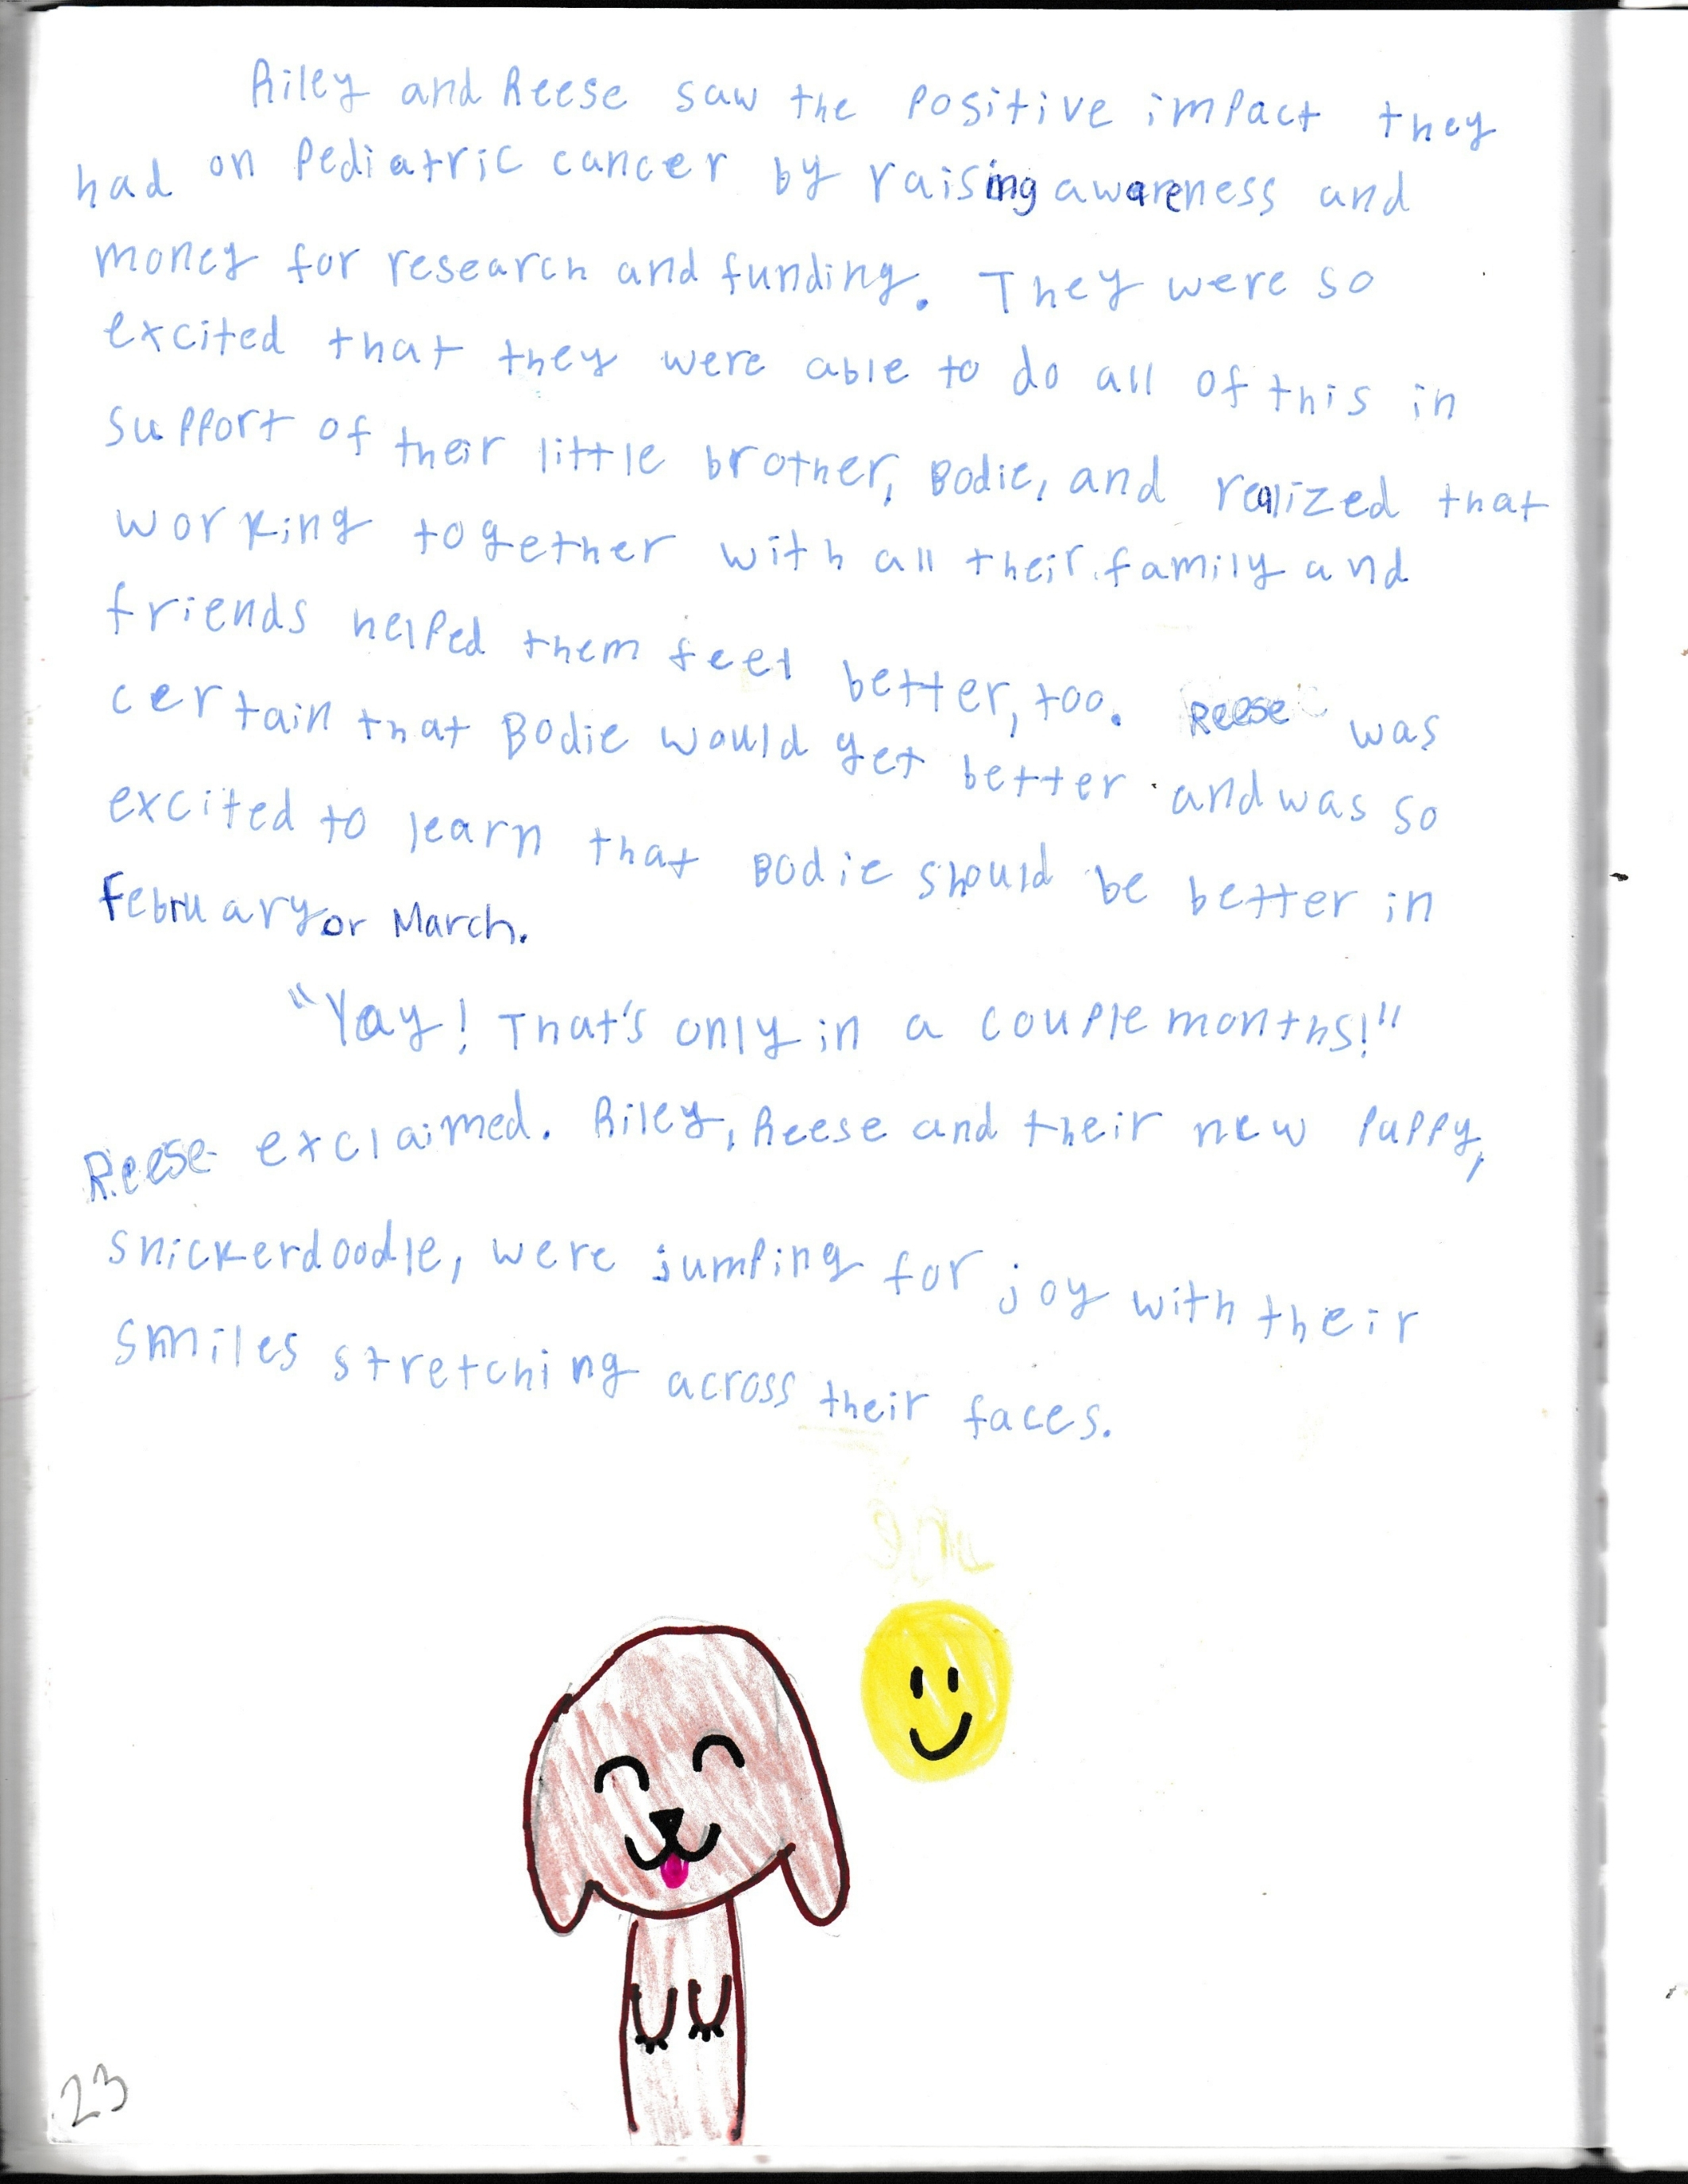 Riley and Reese saw the positive impact they
had on pediatric cancer by raising awareness and
money for research and funding. They were so
excited that they were able to do all of this in
support of their little brother, Bodie, and realized that
working together with all their family and
friends helped them feel better, too. Reese was
certain that Bodie would get better and was so
excited to learn that Bodie should be better in
February or March.
"Yay! That's only in a couple months!"
Reese exclaimed. Riley, Reese and their new puppy,
snickerdoodle, were jumping for joy with their
smiles stretching across their faces.
23